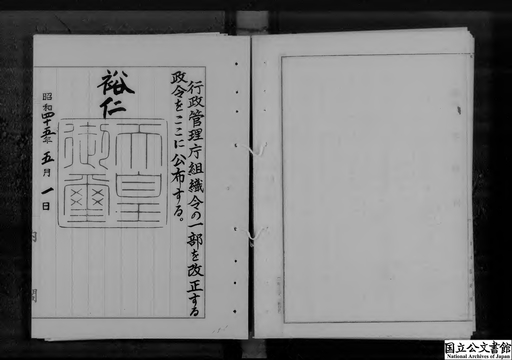 行政管理庁組織令の一部を改正する
政令をここに公布する。
裕仁
天皇
御璽
昭和四十五年五月一日
内閣
国立公文書館
National Archives of Japan